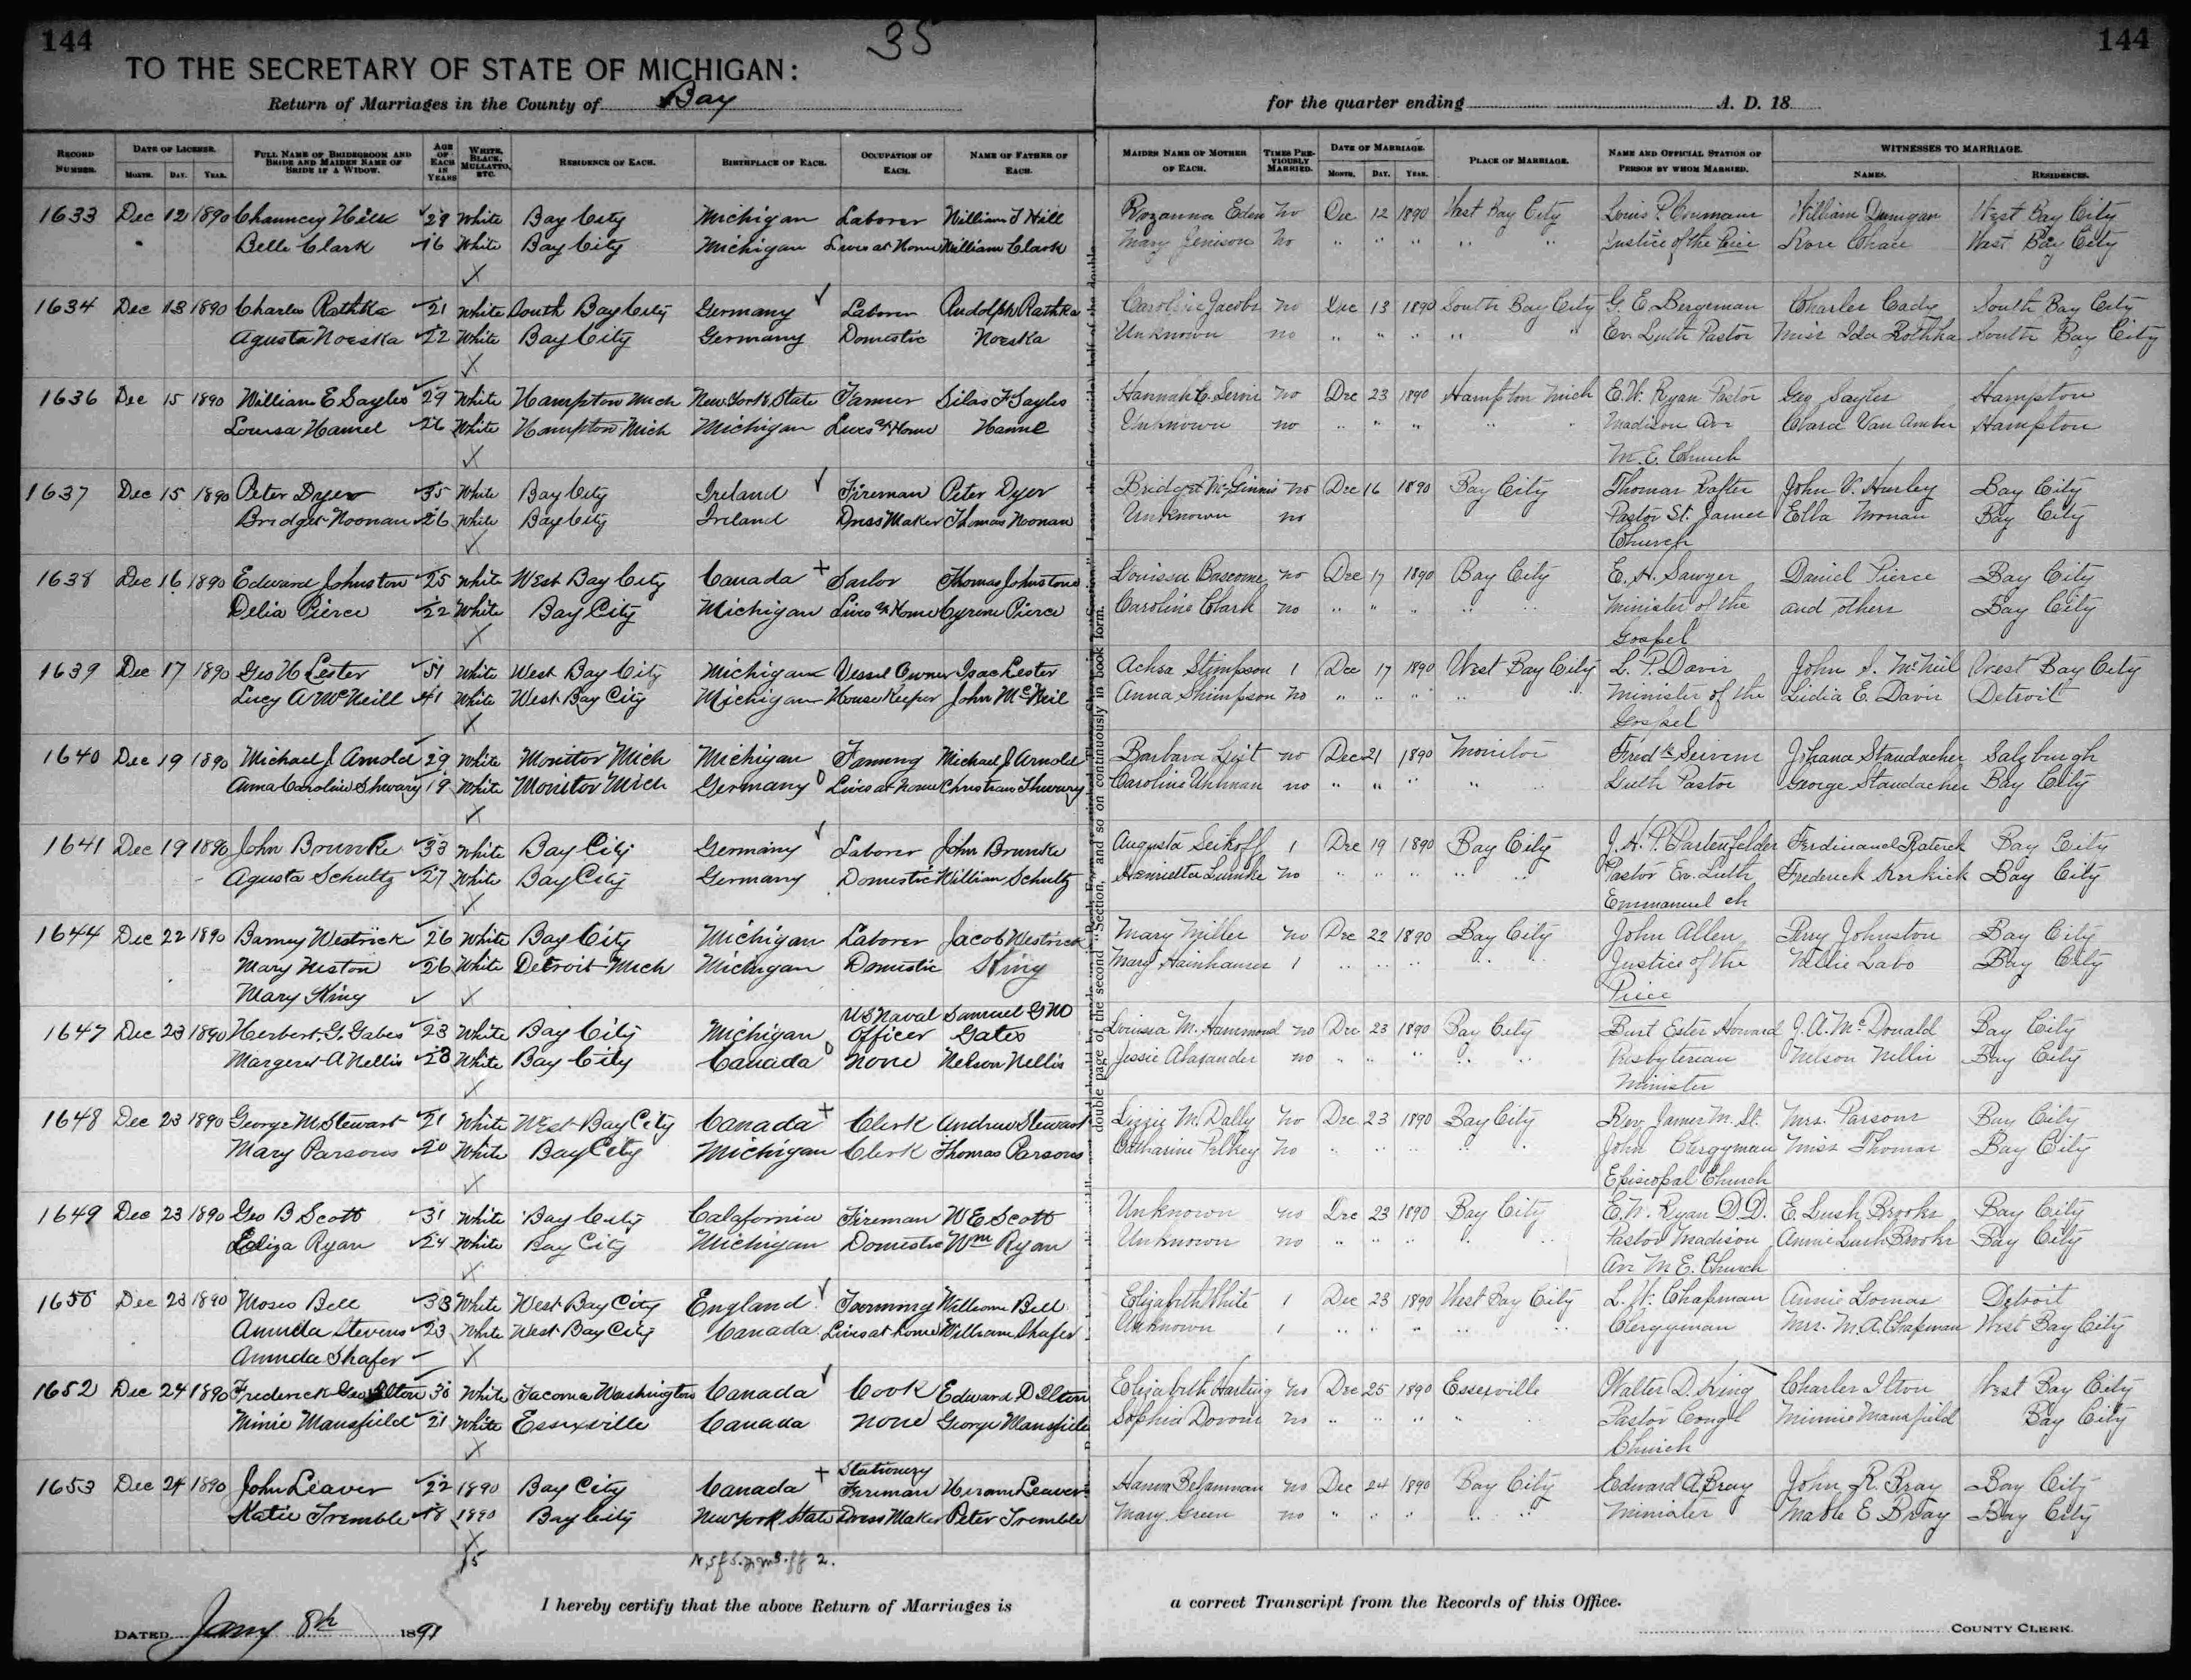 144 35 144
TO THE SECRETARY OF STATE OF MICHIGAN:
Return of Marriages in the County of Bay for the quarter ending A. D. 18
RECORD NUMBER. DATE OF LICENSE. MONTH. DAY. YEAR. FULL NAME OF BRIDEGROOM AND BRIDE AND MAIDEN NAME OF BRIDE IF A WIDOW. AGE OF EACH IN YEARS WHITE, BLACK, MULLATTO, ETC. RESIDENCE OF EACH. BIRTHPLACE OF EACH. OCCUPATION OF EACH. NAME OF FATHER OF EACH. MAIDEN NAME OF MOTHER OF EACH. TIMES PREVIOUSLY MARRIED. DATE OF MARRIAGE. MONTH. DAY. YEAR. PLACE OF MARRIAGE. NAME AND OFFICIAL STATION OF PERSON BY WHOM MARRIED. WITNESSES TO MARRIAGE. NAMES. RESIDENCES.
1633 Dec 12 1890 Chauncey Hill 29 White Bay City Michigan Laborer William J Hill Rozanna Eden No Dec 12 1890 West Bay City Louis P. William Dunigan West Bay City
Belle Clark 16 White Bay City Michigan Lives at Home William Clark Mary Jenison No " " " " " Justice of the Rose West Bay City
1634 Dec 13 1890 Charles Rathka 21 White South Bay City Germany Laborer Rudolph Rathka Caroline Jacobs no Dec 13 1890 South Bay City G. E. Bergeman Charles Cady South Bay City
Agusta Noeska 22 White Bay City Germany Domestic Noeska Unknown no " " " " " Ev. Luth Pastor Miss Ida Rothka South Bay City
1636 Dec 15 1890 William E Sayles 29 White Hampton Mich New York State Farmer Silas F Sayles Hannah C. no Dec 23 1890 Hampton Mich E. W. Ryan Pastor Geo Sayles Hampton
Louisa Hamel 26 White Hampton Mich Michigan Lives at Home Unknown no " " " " " Madison Ave Clara Van Amber Hampton
M. E. Church
1637 Dec 15 1890 Peter Dyer 35 White Bay City Ireland Fireman Peter Dyer Bridget McGinnis no Dec 16 1890 Bay City Thomas Rafter John V. Hurley Bay City
Bridget Noonan 26 White Bay City Ireland Dress Maker Thomas Noonan Unknown no Pastor St. James Ella Noonan Bay City
Church
1638 Dec 16 1890 Edward Johnston 25 White West Bay City Canada Sailor Thomas Johnston Louissa Bascome no Dec 17 1890 Bay City E. H. Sawyer Daniel Pierce Bay City
Delia Pierce 22 White Bay City Michigan Lives at Home Cyrene Pierce Caroline Clark no " " " " " Minister of the and others Bay City
Gospel
1639 Dec 17 1890 Geo H Lester 51 White West Bay City Michigan Vessel Owner Isac Lester Achsa Stimpson 1 Dec 17 1890 West Bay City L. P. Davis John S. McNeil West Bay City
Lucy A McNeill 41 White West Bay City Michigan House Keeper John McNeil Anna Shimpson No " " " " " Minister of the Lidia E. Davis Detroit
Gospel
1640 Dec 19 1890 Michael J. Arnold 29 White Monitor Mich Michigan Farming Michael J Arnold Barbara no Dec 21 1890 Monitor Fredk Johana Staudacher Salzburgh
Anna Caroline 19 White Monitor Mich Germany Lives at home Christian Caroline Uhlman no " " " " " Luth Pastor George Staudacher Bay City
1641 Dec 19 1890 John Brunke 33 White Bay City Germany Laborer John Brunke Augusta Seikoff 1 Dec 19 1890 Bay City J. H. P. Partenfelder Ferdinand Raterek Bay City
Agusta Schultz 27 White Bay City Germany Domestic William Schultz Henrietta Lumke No " " " " " Pastor Ev. Luth Frederick Bay City
Emmanuel ch
1644 Dec 22 1890 Barney Westrick 26 White Bay City Michigan Laborer Jacob Westrick Mary Miller No Dec 22 1890 Bay City John Allen Perry Johnston Bay City
Mary Heston 26 White Detroit Mich Michigan Domestic King Mary Hainhauser 1 " " " " " Justice of the Nellie Labo Bay City
Mary King
1647 Dec 23 1890 Herbert G. Gates 23 White Bay City Michigan US Naval Officer Samuel G M Gates Louisia M. Hammond no Dec 23 1890 Bay City Burt Ester Howard J. A. McDonald Bay City
Margeret A Nellis 28 White Bay City Canada None Nelson Nellis Jessie Alaxander no " " " " " Presbyterian Nelson Nellis Bay City
Minister
1648 Dec 23 1890 George M Stewart 21 White West Bay City Canada Clerk Andrew Stewart Lizzie M. Dally No Dec 23 1890 Bay City Rev James M. St. Mrs. Parsons Bay City
Mary Parsons 20 White Bay City Michigan Clerk Thomas Parsons Catharine Pelkey No " " " " " John Clergyman Miss Thomas Bay City
Episcopal Church
1649 Dec 23 1890 Geo B Scott 31 White Bay City Calafornia Fireman W E Scott Unknown no Dec 23 1890 Bay City E. W. Ryan D.D. E. Lush Brooks Bay City
Eliza Ryan 24 White Bay City Michigan Domestic Wm Ryan Unknown no " " " " " Pastor Madison Annie Lush Brooks Bay City
Av M E. Church
1650 Dec 23 1890 Moses Bell 33 White West Bay City England Farming William Bell Elizabeth White 1 Dec 23 1890 West Bay City L. W. Chapman Annie Lomas Detroit
Amnda Stevens 23 White West Bay City Canada Lives at home William Shafer Unknown 1 " " " " " Clergyman Mrs. M. A. Chapman West Bay City
Amnda Shafer
1652 Dec 24 1890 Frederick Geo Ilton 30 White Tacoma Washington Canada Cook Edward D Ilton Elizabeth Harting No Dec 25 1890 Essexville Walter D. King Charles Ilton West Bay City
Minie Mansfield 21 White Essexville Canada None George Mansfield Sophia no " " " " " Pastor Congl Minnie Mansfield Bay City
Church
1653 Dec 24 1890 John Leaver 22 1890 Bay City Canada Stationery Fireman Hiram Leaver Hanna no Dec 24 1890 Bay City Edward A Bray John R. Bray Bay City
Katie Tremble 18 1890 Bay City New York State Dress Maker Peter Tremble Mary Green no " " " " " Minister Mable E Bray Bay City
15
I hereby certify that the above Return of Marriages is a correct Transcript from the Records of this Office.
DATED Jany 8th 1891 COUNTY CLERK.